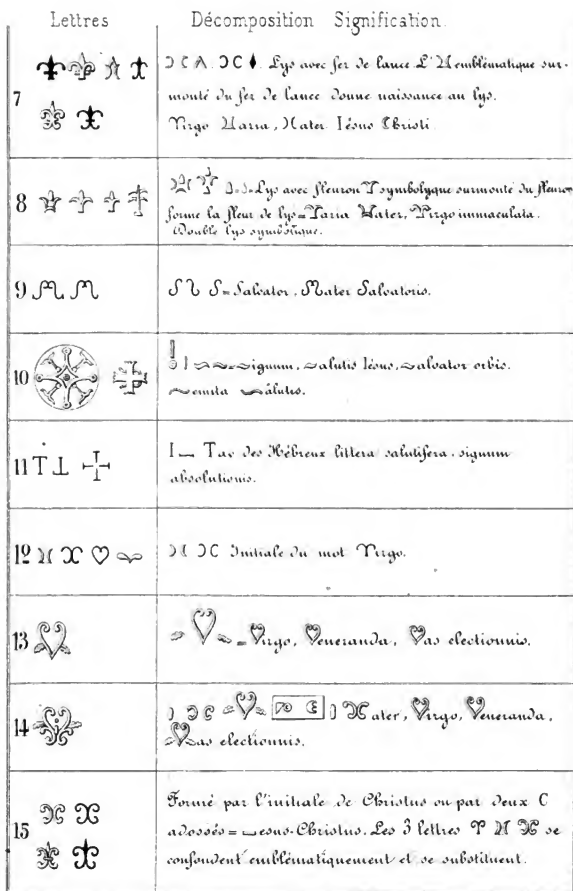 Lettres Décomposition Signification.
7 Ɔ C Λ. ƆC ♦. Lys avec fer de lance. L'M emblématique sur-
monté du fer de lance donne naissance au lys.
Virgo Maria, Mater Iésus Christi
8 Lys avec fleuron symbolyque surmonté du fleuron
forme la fleur de lys = Maria Mater, Virgo immaculata.
Double lys symbolique.
9 S = Salvator, Mater Salvatoris.
10 signum, salutis Iésus, salvator orbis.
semita sâlutis.
11 T ⊥ I Tav des Hébreux littera salutifera. signum
absolutionis.
12 ƆC Initiale du mot Virgo.
13 = Virgo, Veneranda, Vas electionnis.
14 Mater, Virgo, Veneranda,
Vas electionnis.
15 Formé par l'initiale de Christus ou par deux C
adossés = Jesus-Christus. Les 3 lettres se
confondent emblématiquement et se substituent.